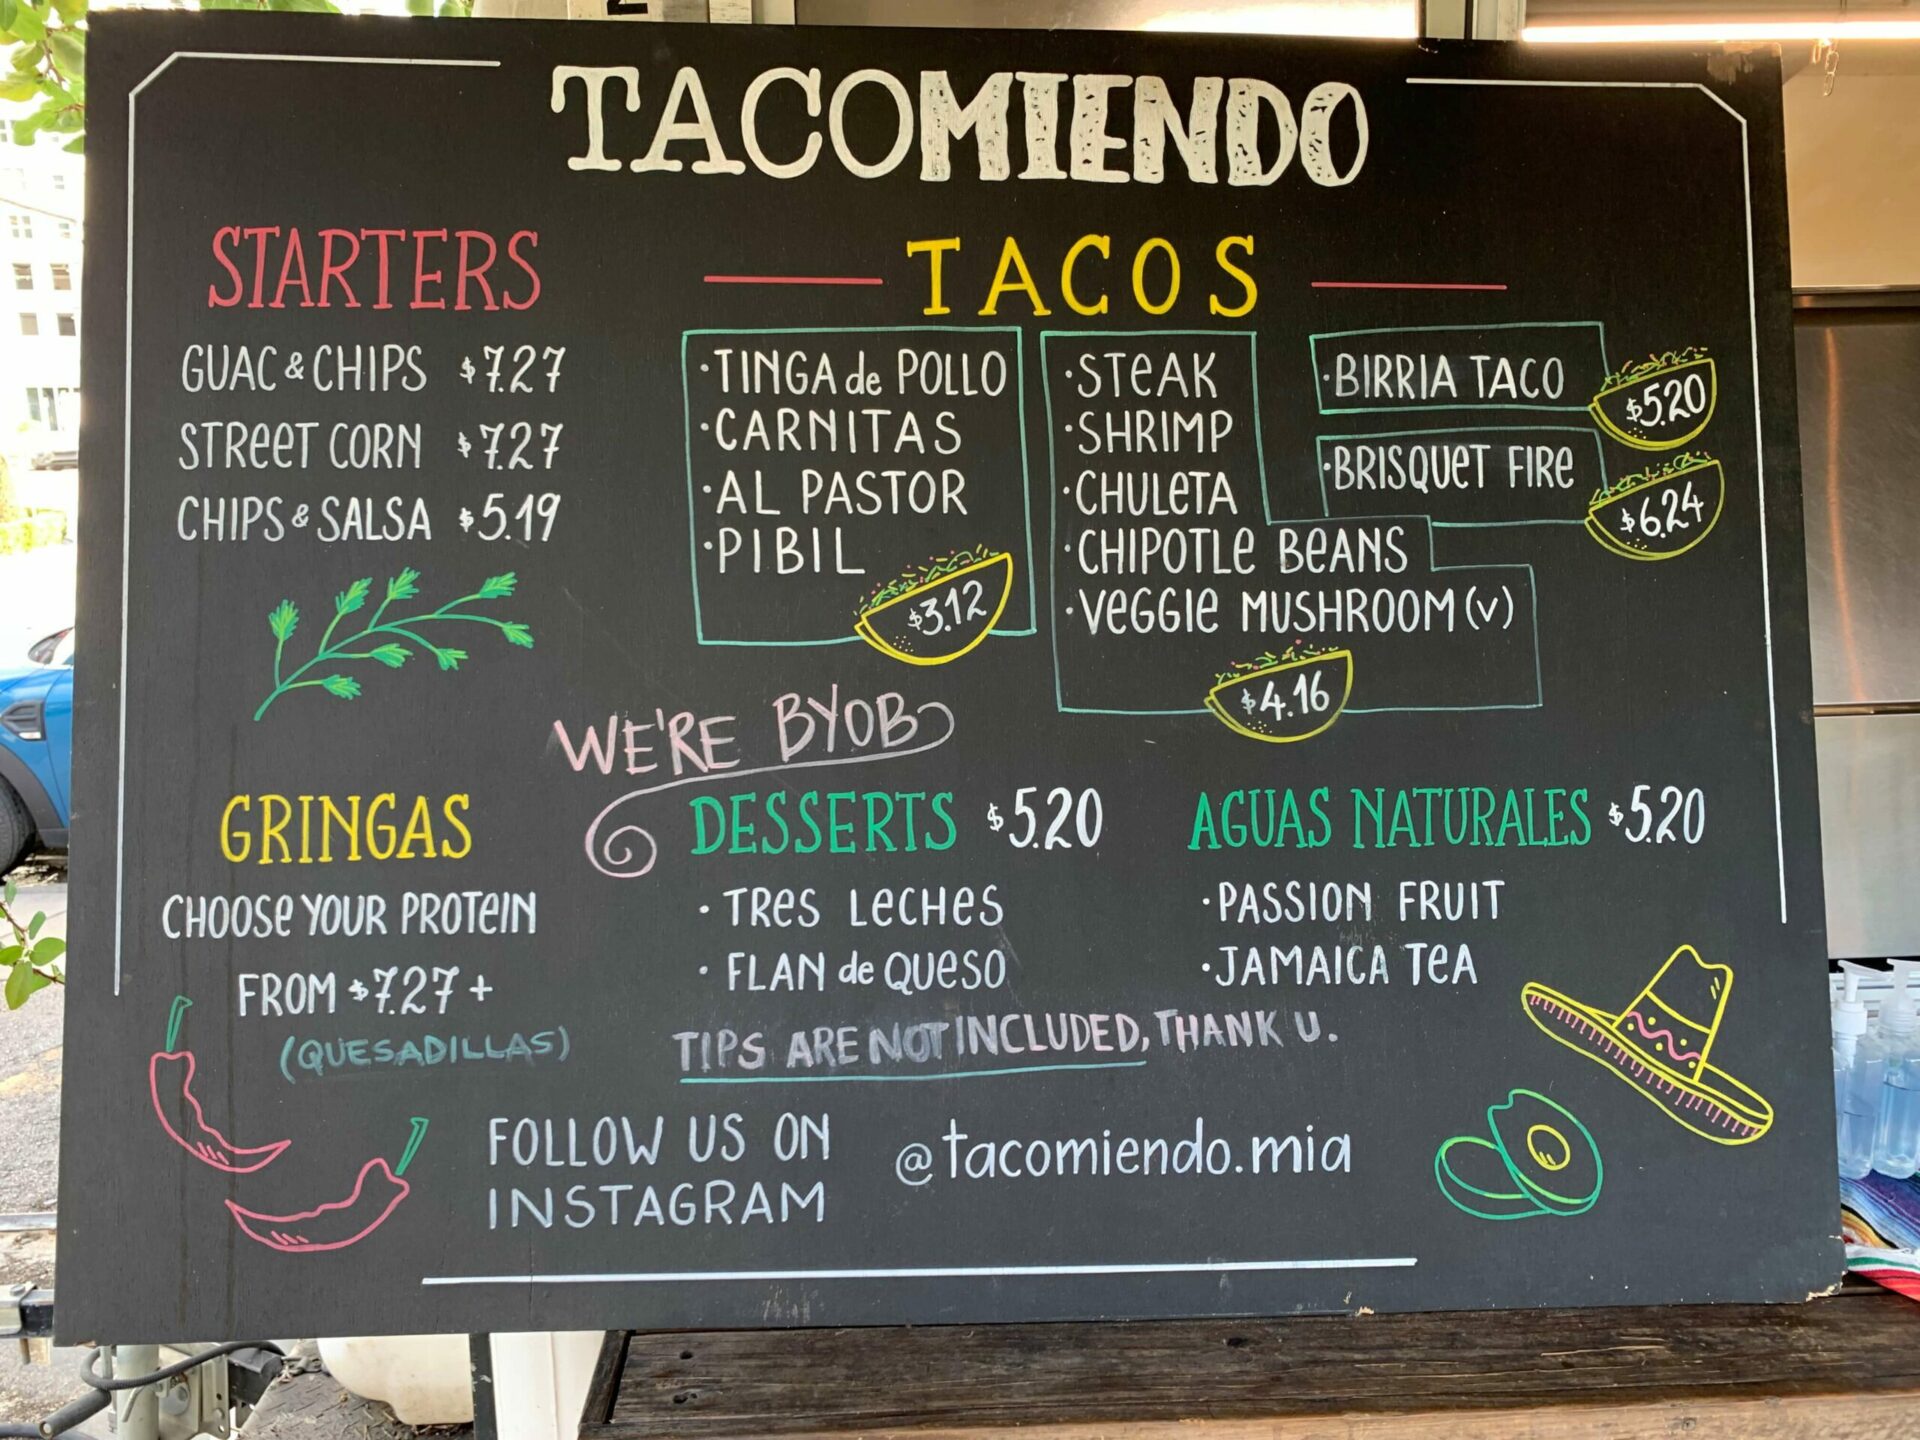 TACOMIENDO
STARTERS
GUAC & CHIPS $7.27
STREET CORN $7.27
CHIPS & SALSA $5.19
TACOS
·TINGA de POLLO
·CARNITAS
·AL PASTOR
·PIBIL
$3.12
·STEAK
·SHRIMP
·CHULETA
·CHIPOTLE BEANS
·VEGGIE MUSHROOM (V)
$4.16
·BIRRIA TACO
$5.20
·BRISQUET FIRE
$6.24
WE'RE BYOB
GRINGAS
CHOOSE YOUR PROTEIN
FROM $7.27 +
(QUESADILLAS)
DESSERTS $5.20
· TRES LECHES
· FLAN de QUESO
AGUAS NATURALES $5.20
·PASSION FRUIT
·JAMAICA TEA
TIPS ARE NOT INCLUDED, THANK U.
FOLLOW US ON
INSTAGRAM
@tacomiendo.mia